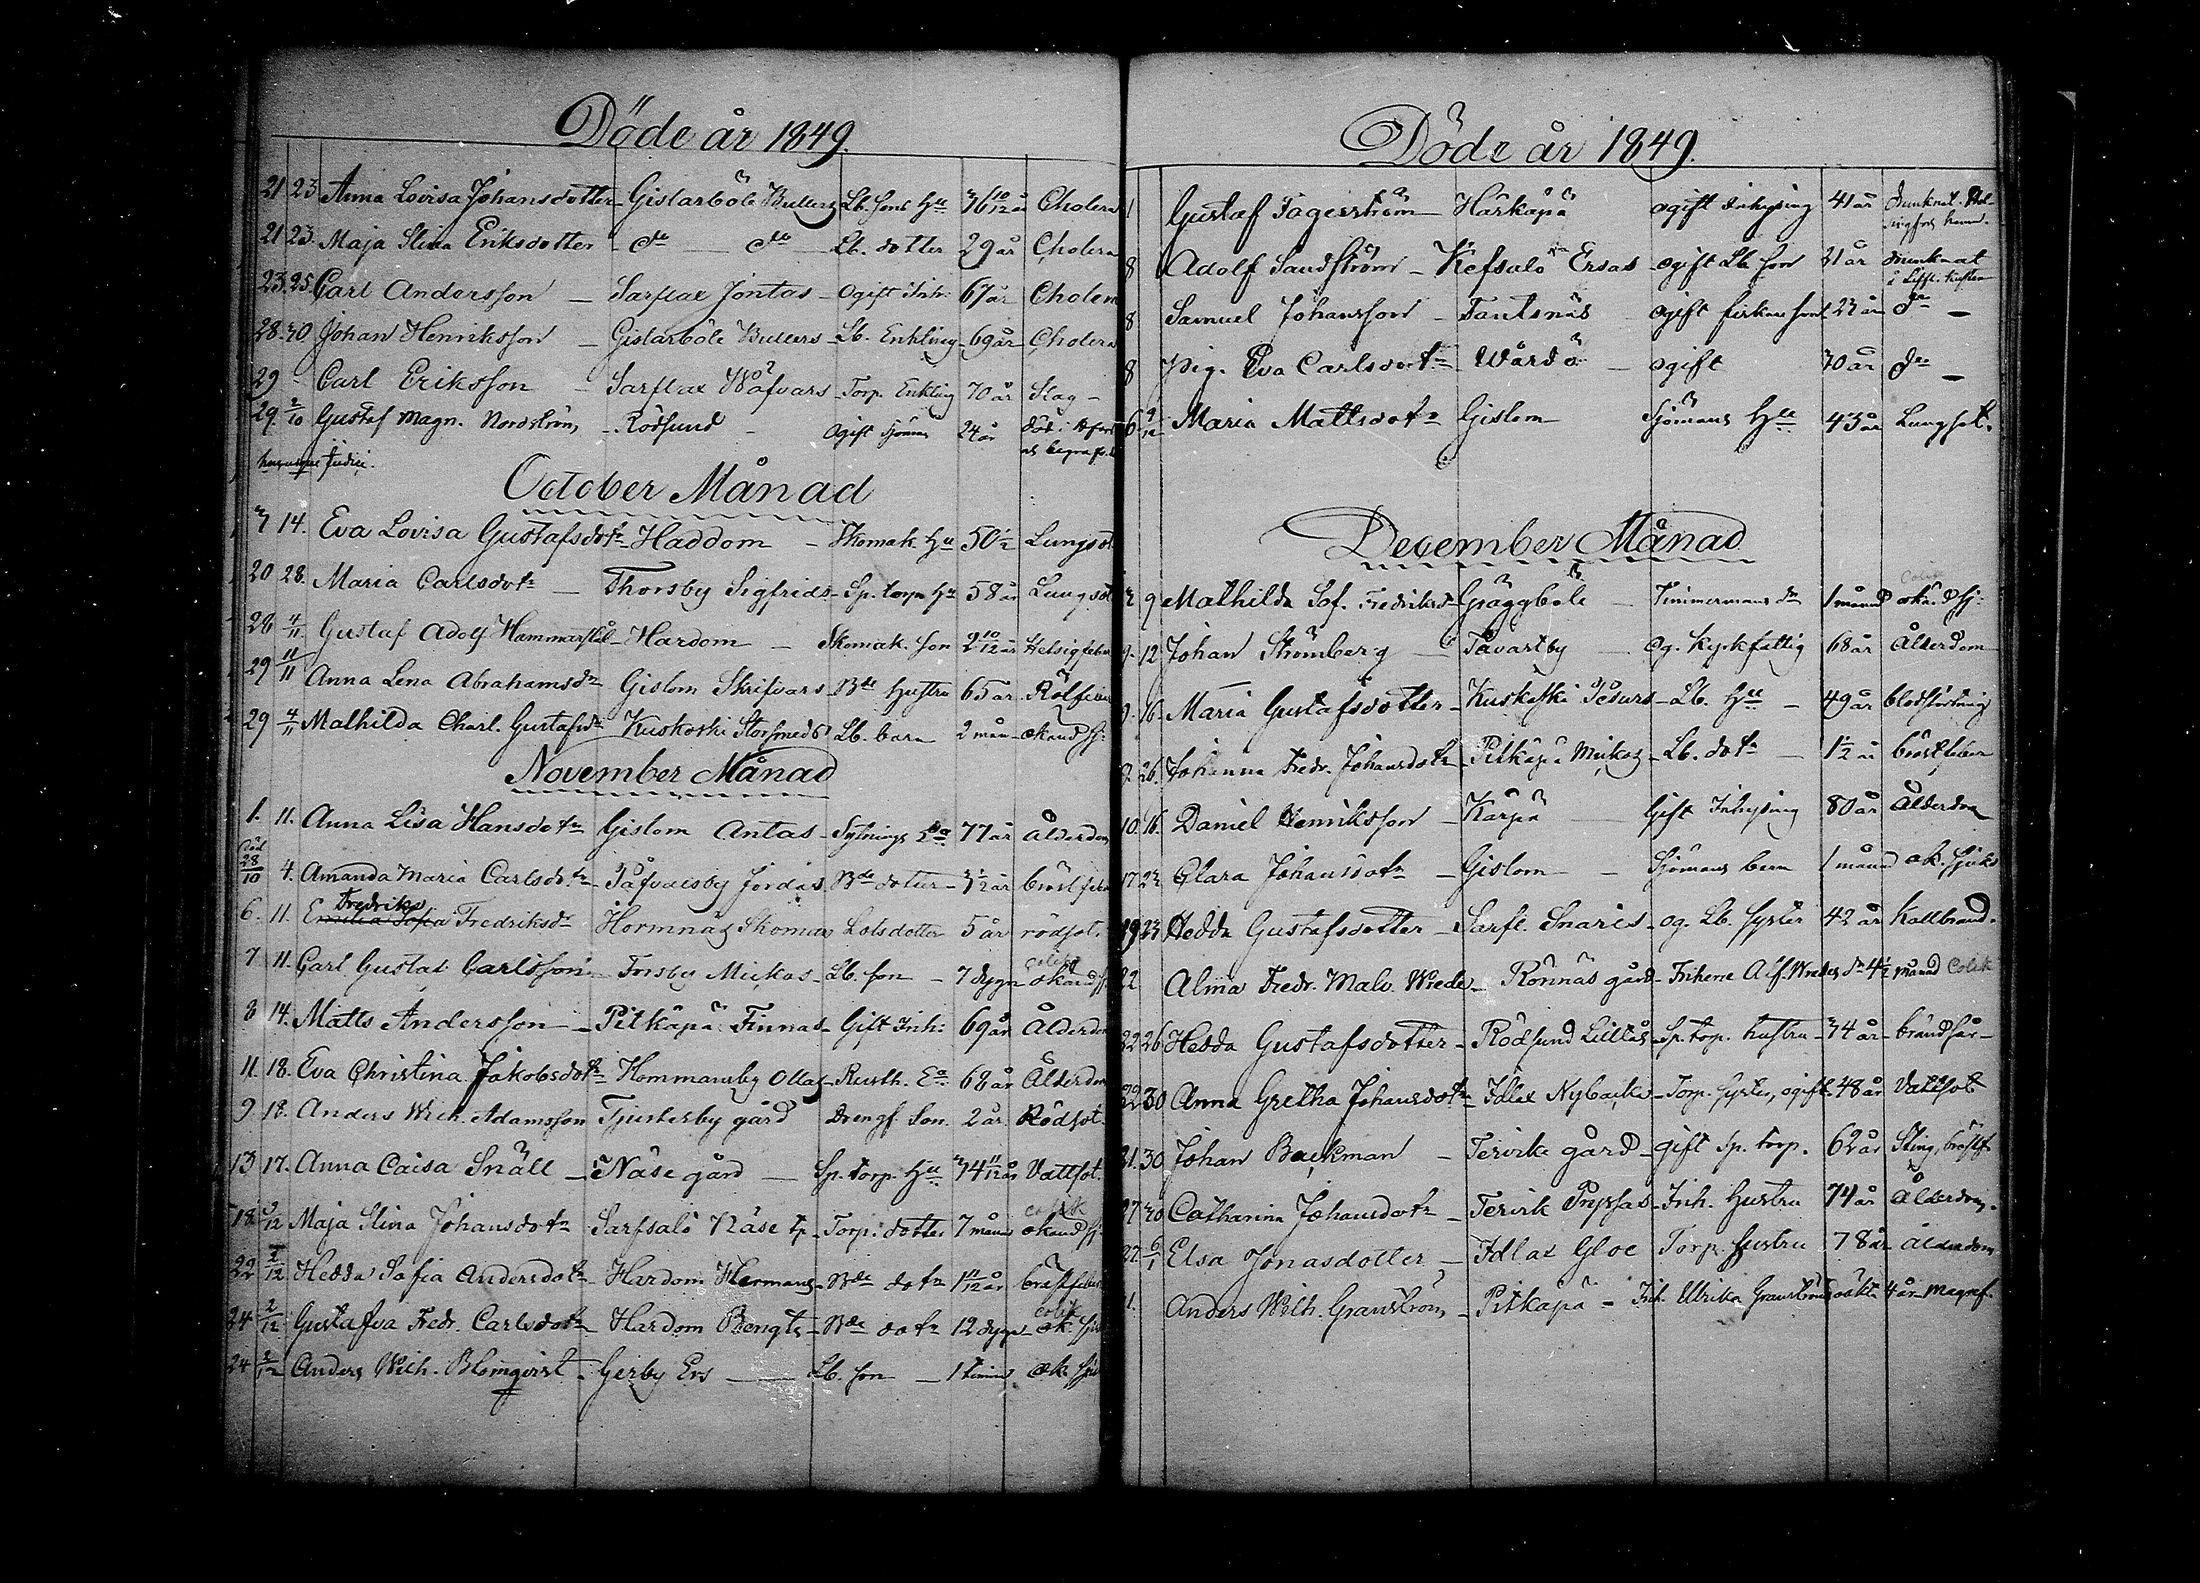 Döde år 1849.
21 23 Anna Lovisa Johansdotter Gislarböle Bullers Lb. sons Hu 36 10/12 år Cholera
21 23. Maja Stina Eriksdotter do do Lb. dotter 29 år Cholera
23. 25. Carl Andersson Sarflax Jontas Ogift Inh: 67 år Cholera
28. 30. Johan Henriksson Gislarböle Bullers Lb. Enkling 69 år Cholera
29 Carl Eriksson Sarflax Wäfvars Torp. Enkling 70 år Slag
29. 2/10 Gustaf Magn. Nordström Rödsund Ogift Sjöman 24 år död i
October Månad
7 14. Eva Lovisa Gustafsdotr Haddom Skomak. Hu 50 1/2 Lungsot
20 28. Maria Carlsdotr Thorsby Sigfrids Sp. torp Hu 58 år Lungsot
28 4/11 Gustaf Adolf Hammarstål Hardom Skomak. son 2 10/12 år Hetsigfeber
29 11/11 Anna Lena Abrahamsdr Gislom Skrifvars Bde Hustru 65 år Rötfeber
29 4/11 Mathilda Charl. Gustafsdr Kuskoski Storsmeds Lb. barn 2 mån okänd sj:
November Månad
1. 11. Anna Lisa Hansdotr Gislom Antas Sytnings Eka 77 år Ålderdom
död 28/10 4. Amanda Maria Carlsdotr Påfvalsby Jordas Bde dotter 3 1/2 år bröstfeber
Fredrika
6. 11. Emilia Sofia Fredriksdr Hormnäs Skomars Lotsdotter 5 år rödsot.
colik
7 11. Carl Gustaf Carlsson Forsby Mickas Lb. son 7 dygn okänd sj.
8 14. Matts Andersson Pitkäpä Finnas Gift Inh: 69 år Ålderdom
11. 18. Eva Christina Jakobsdotr Hommansby Ollas Rusth. Ea 68 år Ålderdom
9 18. Anders Wilh. Adamsson Tjusterby gård Drengs Son 2 år Rödsot
13 17. Anna Caisa Snäll Näse gård Sp. torp. Hu 34 11/12 år Vattsot.
colik
18. 3/12 Maja Stina Johansdotr Sarfsalö Näse tp Torp. dotter 7 månad okänd sj.
22 2/12 Hedda Sofia Andersdotr Hardom Hermans Bde dotr 1 11/12 år bröstfeber
colik
24 2/12 Gustafva Fredr. Carlsdotr Hardom Bengts Bde dotr 12 dygn ok. sju
24 2/12 Anders Wilh. Blomqvist Gerby Ers Lb. son 1 timme ok. sju
Döde år 1849.
1 Gustaf Fagerström Härkäpä ogift Inhysing 41 år Drunknat
8 Adolf Sandström Kefsalö Ersas ogift Lb. son 21 år drunknat
8 Samuel Johansson Tantsnäs ogift fiskare son 23 år do
8 pig. Eva Carlsdotr Wårdö ogift 30 år do
6 9/12 Maria Mattsdotr Gislom Sjömans Hu 43 år Lungsot.
December Månad
colik
3 9 Mathilda Sof. Fredriksdr Gräggböle Timmermans dr 1 månad okänd sj:
9. 12 Johan Strömberg Tavastby og. kyrkfattig 68 år Ålderdom
9. 16. Maria Gustafsdotter Kuskoski Pesurs Lb. Hu 49 år blodstörtning
9. 26. Johanna Fredr. Johansdotr Pitkäpä Mickas Lb. dotr 1 1/2 år bröstfeber
10. 16. Daniel Henriksson Kärpä Gift Inhysing 80 år Ålderdom
17. 23 Clara Johansdotr Gislom Sjömans barn 1 månad ok. sjukd
19 23 Hedda Gustafsdotter Sarfl. Snaris og. Lb. syster 42 år Kallbrand.
22 Alma Fredr. Malv. Wrede Rönnäs gård Friherre Adf. Wredes dr 4 1/2 månad Colik
22 26 Hedda Gustafsdotter Rödsund Lilläs Sp. torp. hustru 34 år brandsår
22 30 Anna Gretha Johansdotr Idlax Nybacka Torp. syster, ogift 48 år Vattsot
21. 30 Johan Backman Tervik gård gift Sp. torp. 62 år Sting, bröstf.
27 30 Catharina Johansdotr Tervik Prepsas Inh. Hustru 74 år Ålderdom.
27 6/1 Elsa Jonasdotter Idlax Gloe Torp. hustru 78 år Ålderdom
1. Anders Wilh. Granström Pitkäpä Inh. Ulrika Granströms oäkta 4 år Magref.